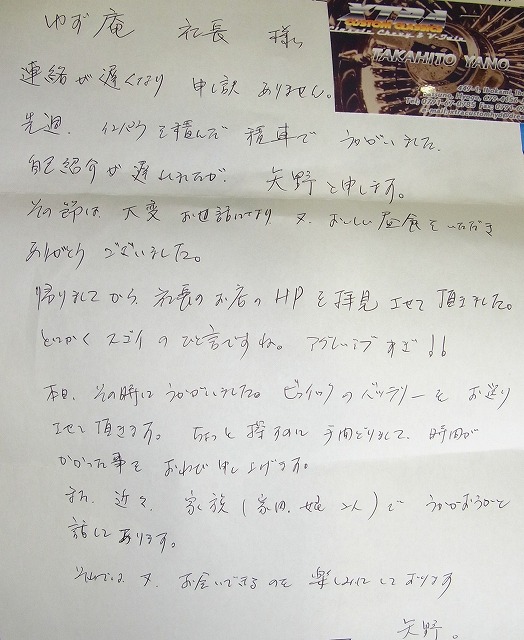 ゆず庵 社長 様
XTRA
CUSTOM CLASSICS
TAKAHITO YANO
連絡が遅くなり 申し訳ありません。
先週、インパラを積んだ積車でうかがいました、
自己紹介が遅れましたが、矢野と申します。
その節は、大変お世話になり又、おいしい昼食をいただき
ありがとうございました。
帰りましてから、社長のお店のHPを拝見させて頂きました。
とにかくスゴイのひと言ですね。アグレッシブすぎ!!
本日、その時にうかがいました。ビュイックのバッテリーをお送り
させて頂きます。ちょっと探すのに手間どりまして、時間が
かかった事をおわび申し上げます。
また、近々、家族(家内、娘2人)でうかがおうかと
話してあります。
それでは又、お会いできるのを楽しみにしております
矢野。